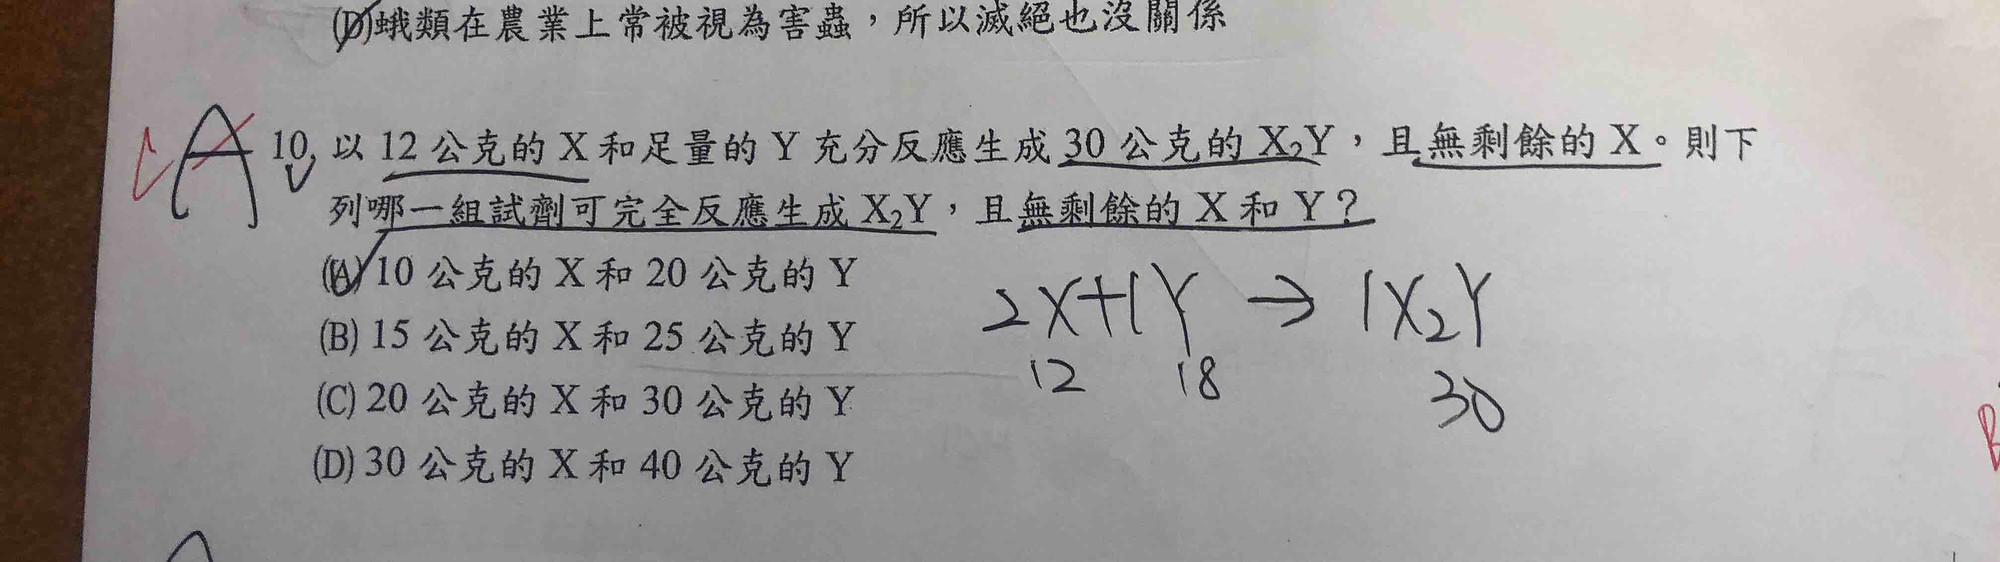 (D)蛾類在農業上常被視為害蟲，所以滅絕也沒關係
A 10. 以 12 公克的 X 和足量的 Y 充分反應生成 30 公克的 X₂Y，且無剩餘的 X。則下
列哪一組試劑可完全反應生成 X₂Y，且無剩餘的 X 和 Y？
(A) 10 公克的 X 和 20 公克的 Y
(B) 15 公克的 X 和 25 公克的 Y
(C) 20 公克的 X 和 30 公克的 Y
(D) 30 公克的 X 和 40 公克的 Y
2X+1Y → 1X₂Y
12 18 30